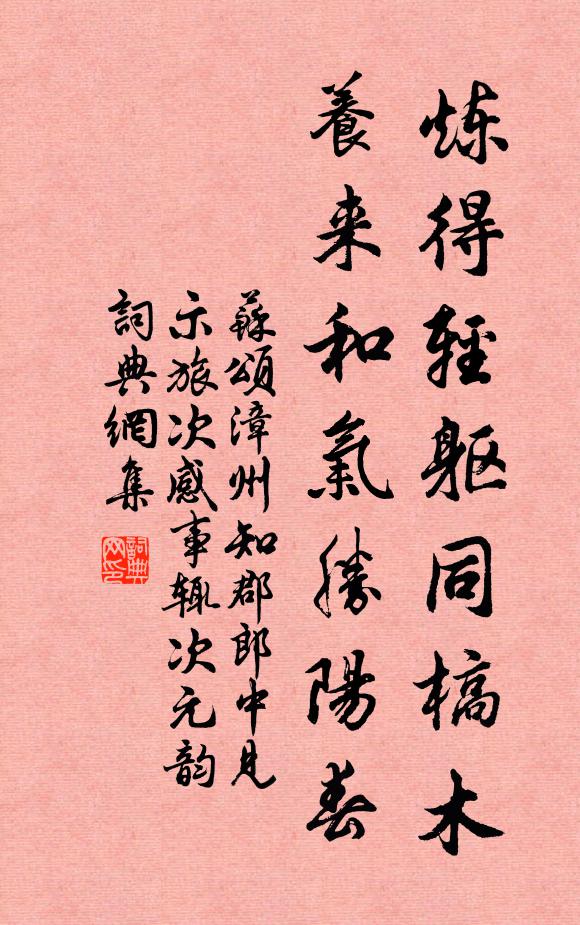 炼得輕躯同槁木
養来和氣勝陽春
蘇頌漳州知郡郎中見
示旅次感事辄次元韵
詞典網集
詞典
网印